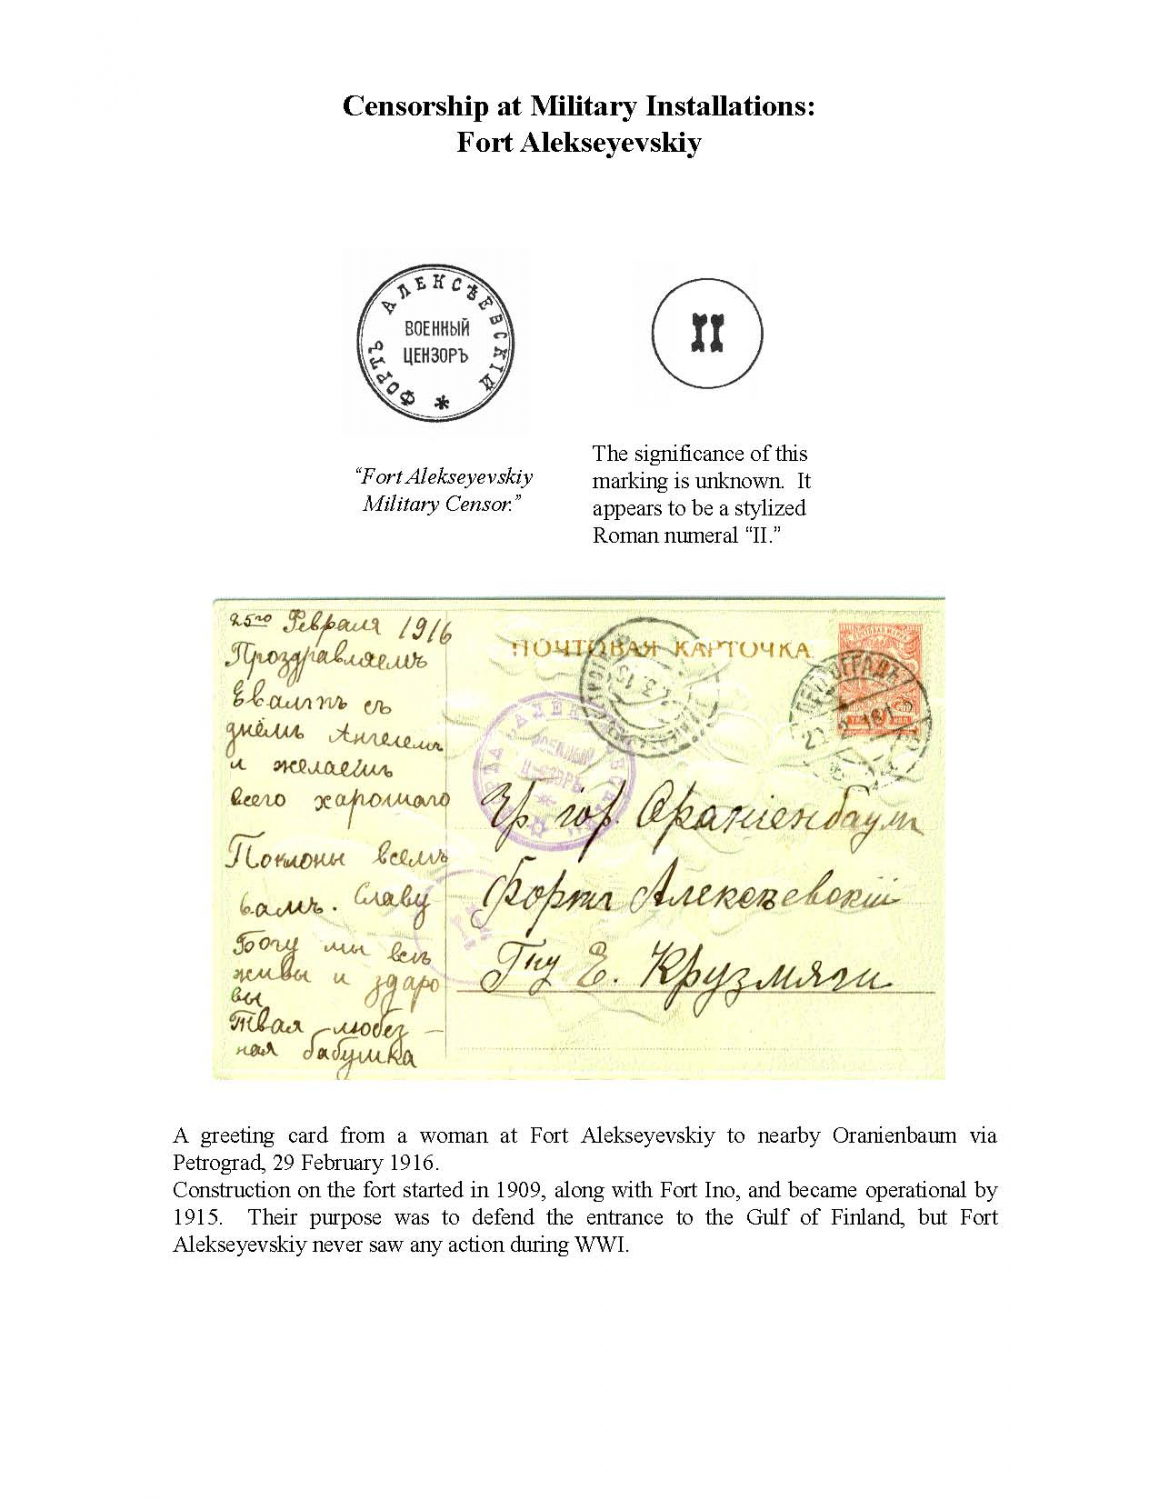 Censorship at Military Installations:
Fort Alekseyevskiy
ФОРТЪ АЛЕКСѢЕВСКІЙ
ВОЕННЫЙ
ЦЕНЗОРЪ
II
“Fort Alekseyevskiy
Military Censor.”
The significance of this
marking is unknown. It
appears to be a stylized
Roman numeral “II.”
25го Февраля 1916
Проздравляемъ
съ
днёмъ Ангелемъ
и желаемъ
всего харошаго
Поклоны всемъ
вамъ. Славу
Богу мы всѣ
живы и здаро
вы
Твая любез-
ная бабушка
ПОЧТОВАЯ КАРТОЧКА
ПЕТРОГРАДЪ
ВОЕННЫЙ
ЦЕНЗОРЪ
гор. Ораніенбаум
Фортъ Алексѣевскій
Гну Е. Крузмяги
A greeting card from a woman at Fort Alekseyevskiy to nearby Oranienbaum via
Petrograd, 29 February 1916.
Construction on the fort started in 1909, along with Fort Ino, and became operational by
1915. Their purpose was to defend the entrance to the Gulf of Finland, but Fort
Alekseyevskiy never saw any action during WWI.